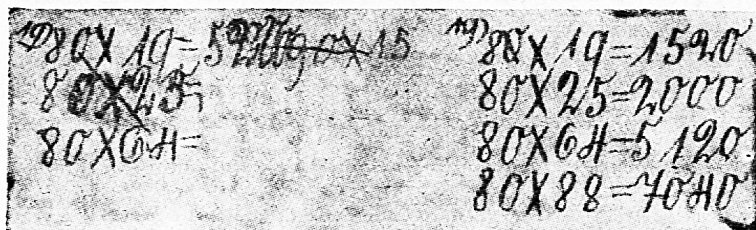 80X19=5
80X25=
80X64=
80X19=1520
80X25=2000
80X64=5120
80X88=7040